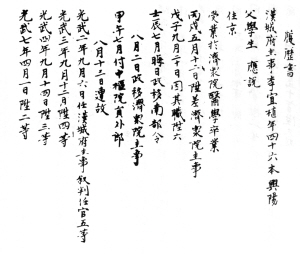 履歷書
漢城府主事李宜植年四十六本興陽
父學生 應說
住京
受業於濟衆院醫學卒業
丙戌五月十八日陞差濟衆院主事
戊子九月二十日因其職陞六
壬辰七月晦日政移南部令
八月二日政移濟衆院主事
甲午七月付中樞院員外郎
八月十三日遭故
光武二年九月六日任漢城府主事敍判任官五等
光武三年九月十二日陞四等
光武四年九月十四日陞三等
光武六年四月一日陞二等